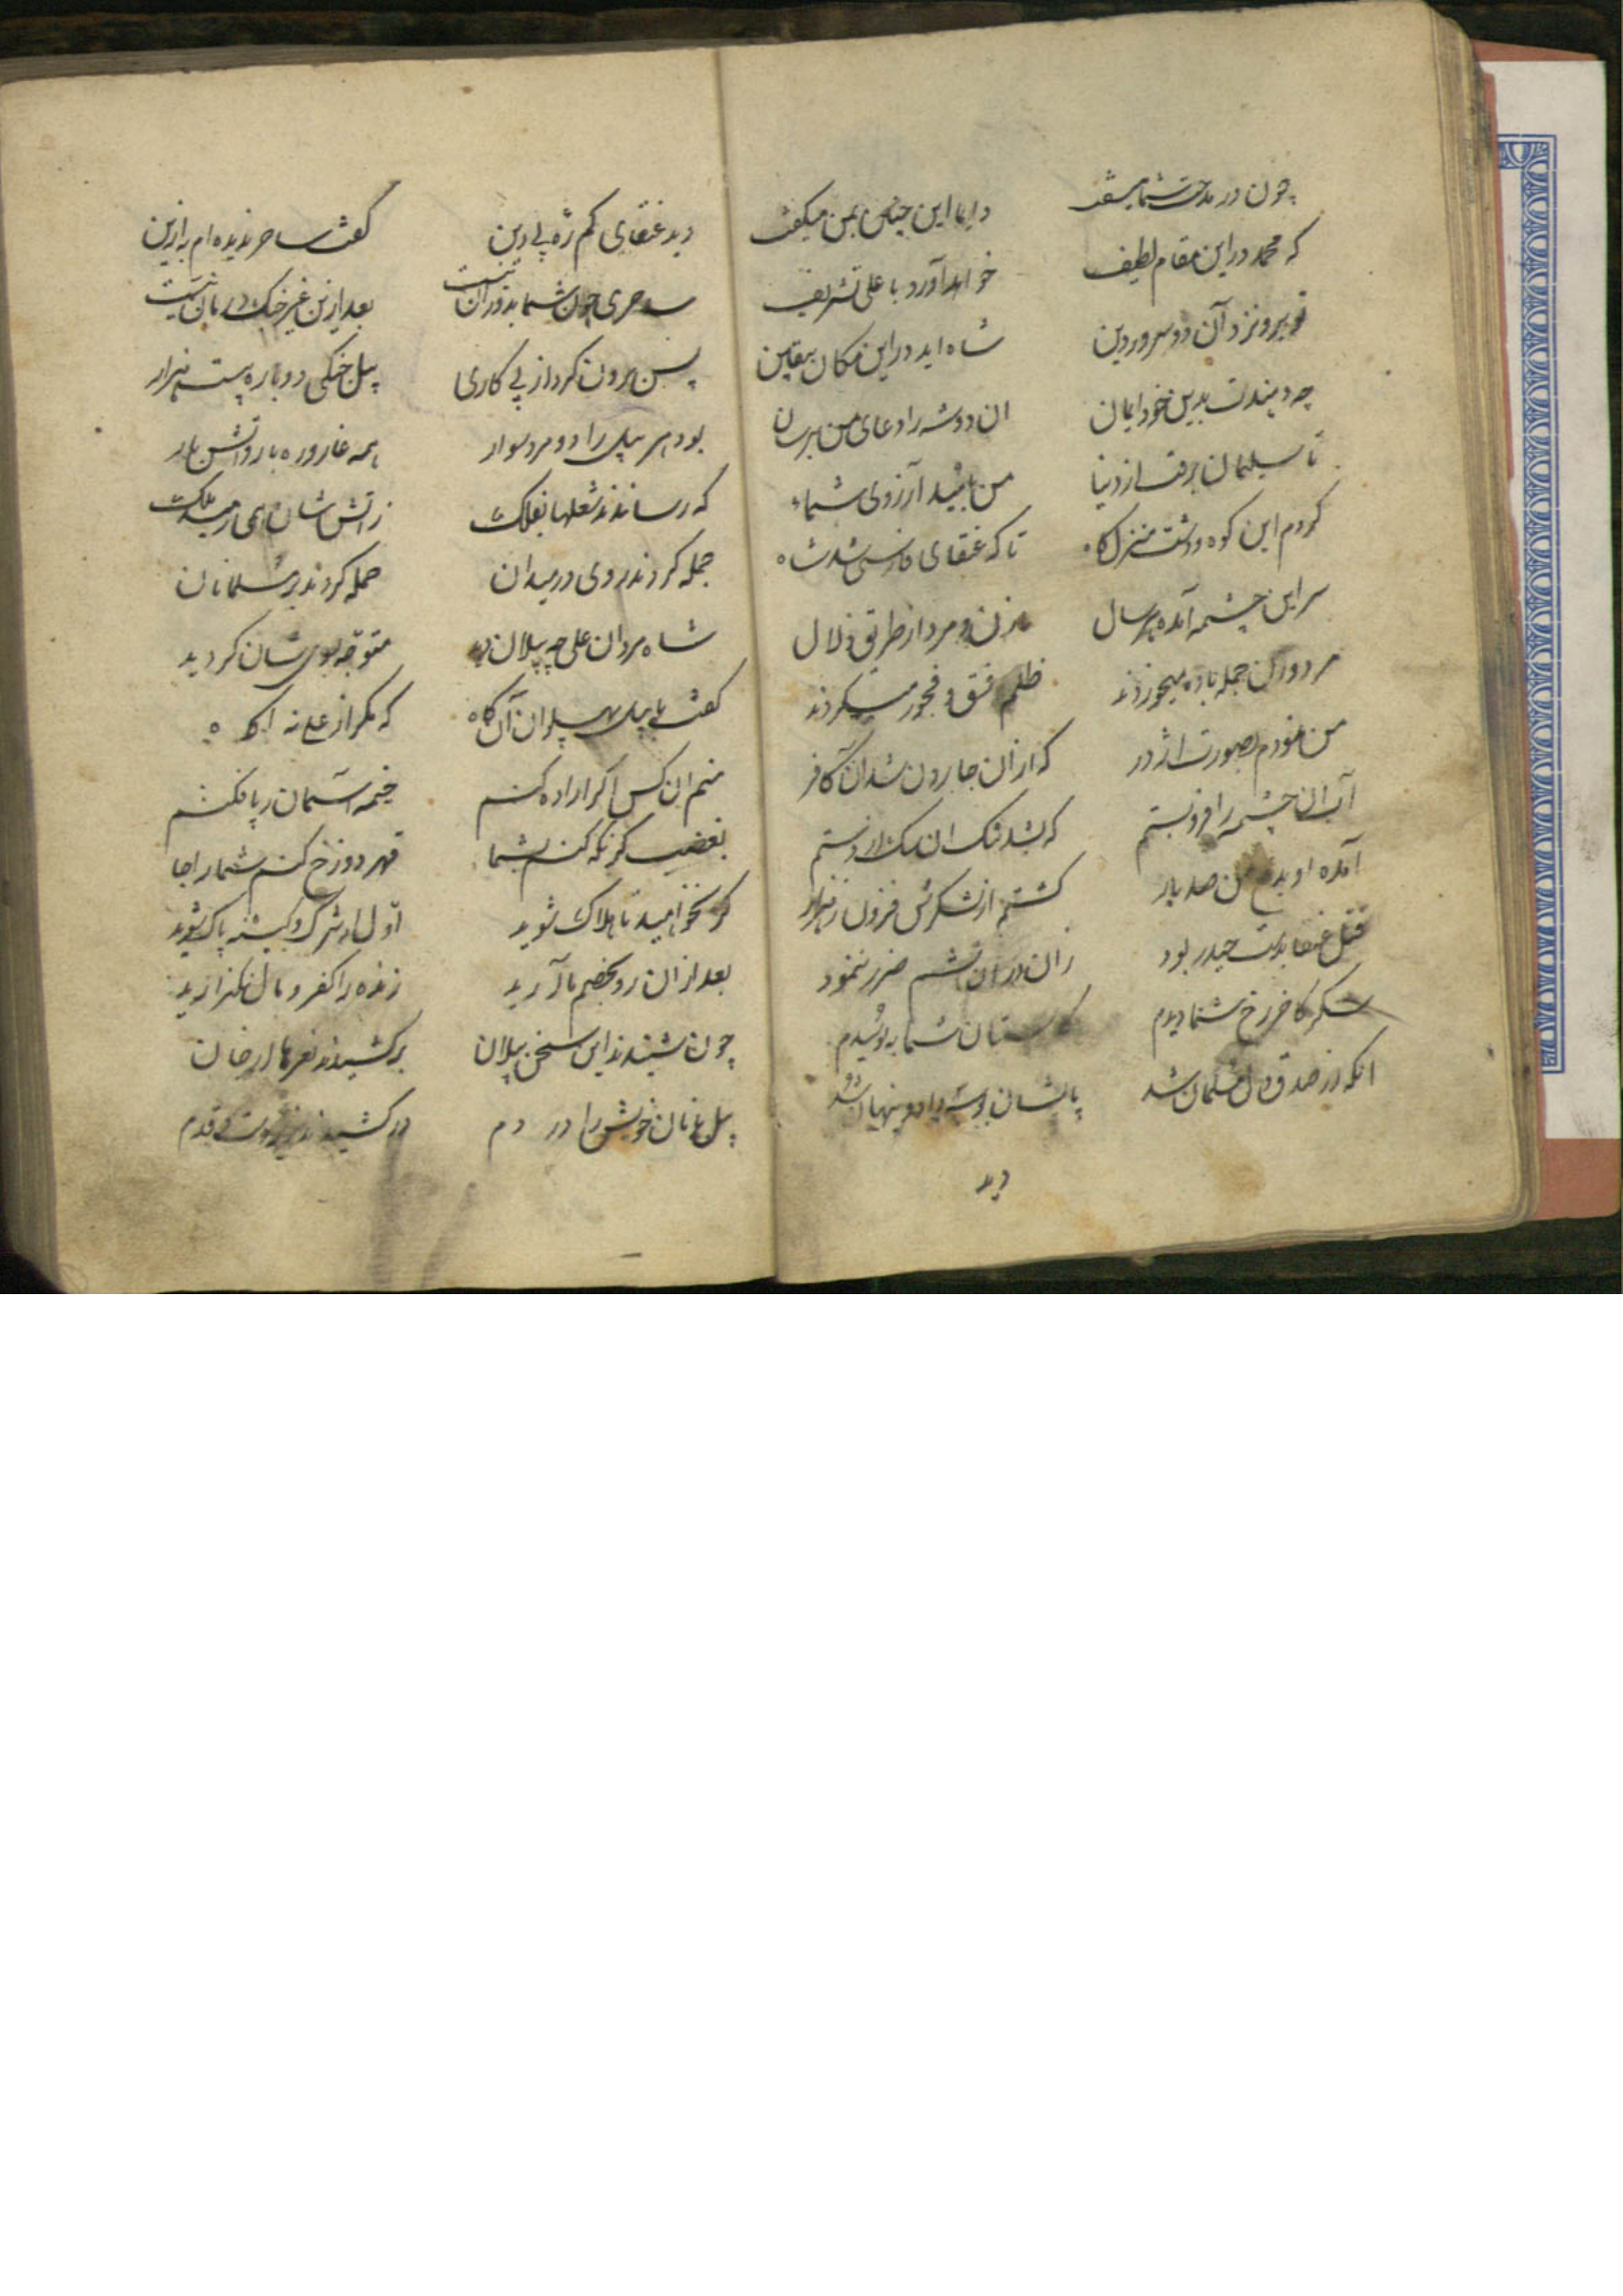 چون در مدحت شما میسفت دایما این چنین بمن میگفت
که محمد در این مقام لطیف خواهد آورد با علی تشریف
تو برو نزد آن دو سرور دین شاه اید در این مکان بیقین
چه دهندت بدین خود ایمان ان دو شه را دعای من برسان
تا سلیمان برفت از دنیا من باشید آرزوی شما
کردم این کوه و دشت منزلگاه تا که عنقای شد شاه
سر این چشمه آمده هر سال با زن و مرد از طریق ضلال
مرد و زن جمله باده میخوردند ظلم و فسق و فجور میکردند
من نمودم بصورت اژدر که ازان جا رود شد ان کافر
آب ان چشمه را فرو بستم که شد تنگ ان
آمده او بدفع من صد بار کشتم از لشکرش فزون ز هزار
قتل عنقا بدست حیدر بود زان در ان چشم ضرر ننمود
شکر کاخر رخ شما دیدم شما ببوسیدم
انگه از صدق دل مسلمان شد پایشان بوسه داد و پنهان شد
دید
دید عنقای کم ره بی دین گفت ساحر ندیده ام به ازین
ساحری چون شما بدوران نیست بعد ازین غیر جنگ درمان نیست
پس برون کرد از پی کاری پیل جنگی دوباره بیست هزار
بود هر پیل را دو مرد سوار همه غاروره بار و آتش بار
که رساندند شعلها بفلک ز آتش شان همی رمید ملک
جمله کردند روی در میدان حمله کردند بر مسلمانان
شاه مردان علی چه پیلان دید متوجه بسوی شان گردید
گفت با پیل پهلوان آن گاه که مگر از علی نه اگاه
منم ان کس اگر اراده کنم خیمه آسمان ز پا فکنم
بغضب گر نگه کنم بشما قهر دوزخ کنم شما را جا
گر نخواهید تا هلاک شوید اول از شرک و کینه پاک شوید
بعد ازان رو بخصم ما آرید زنده را کفر و مال نگذارید
چون شنیدند این سخن پیلان بر کشیدند نعرها از جان
پیل بانان خویش را در دم در کشیدند زیر دست و قدم